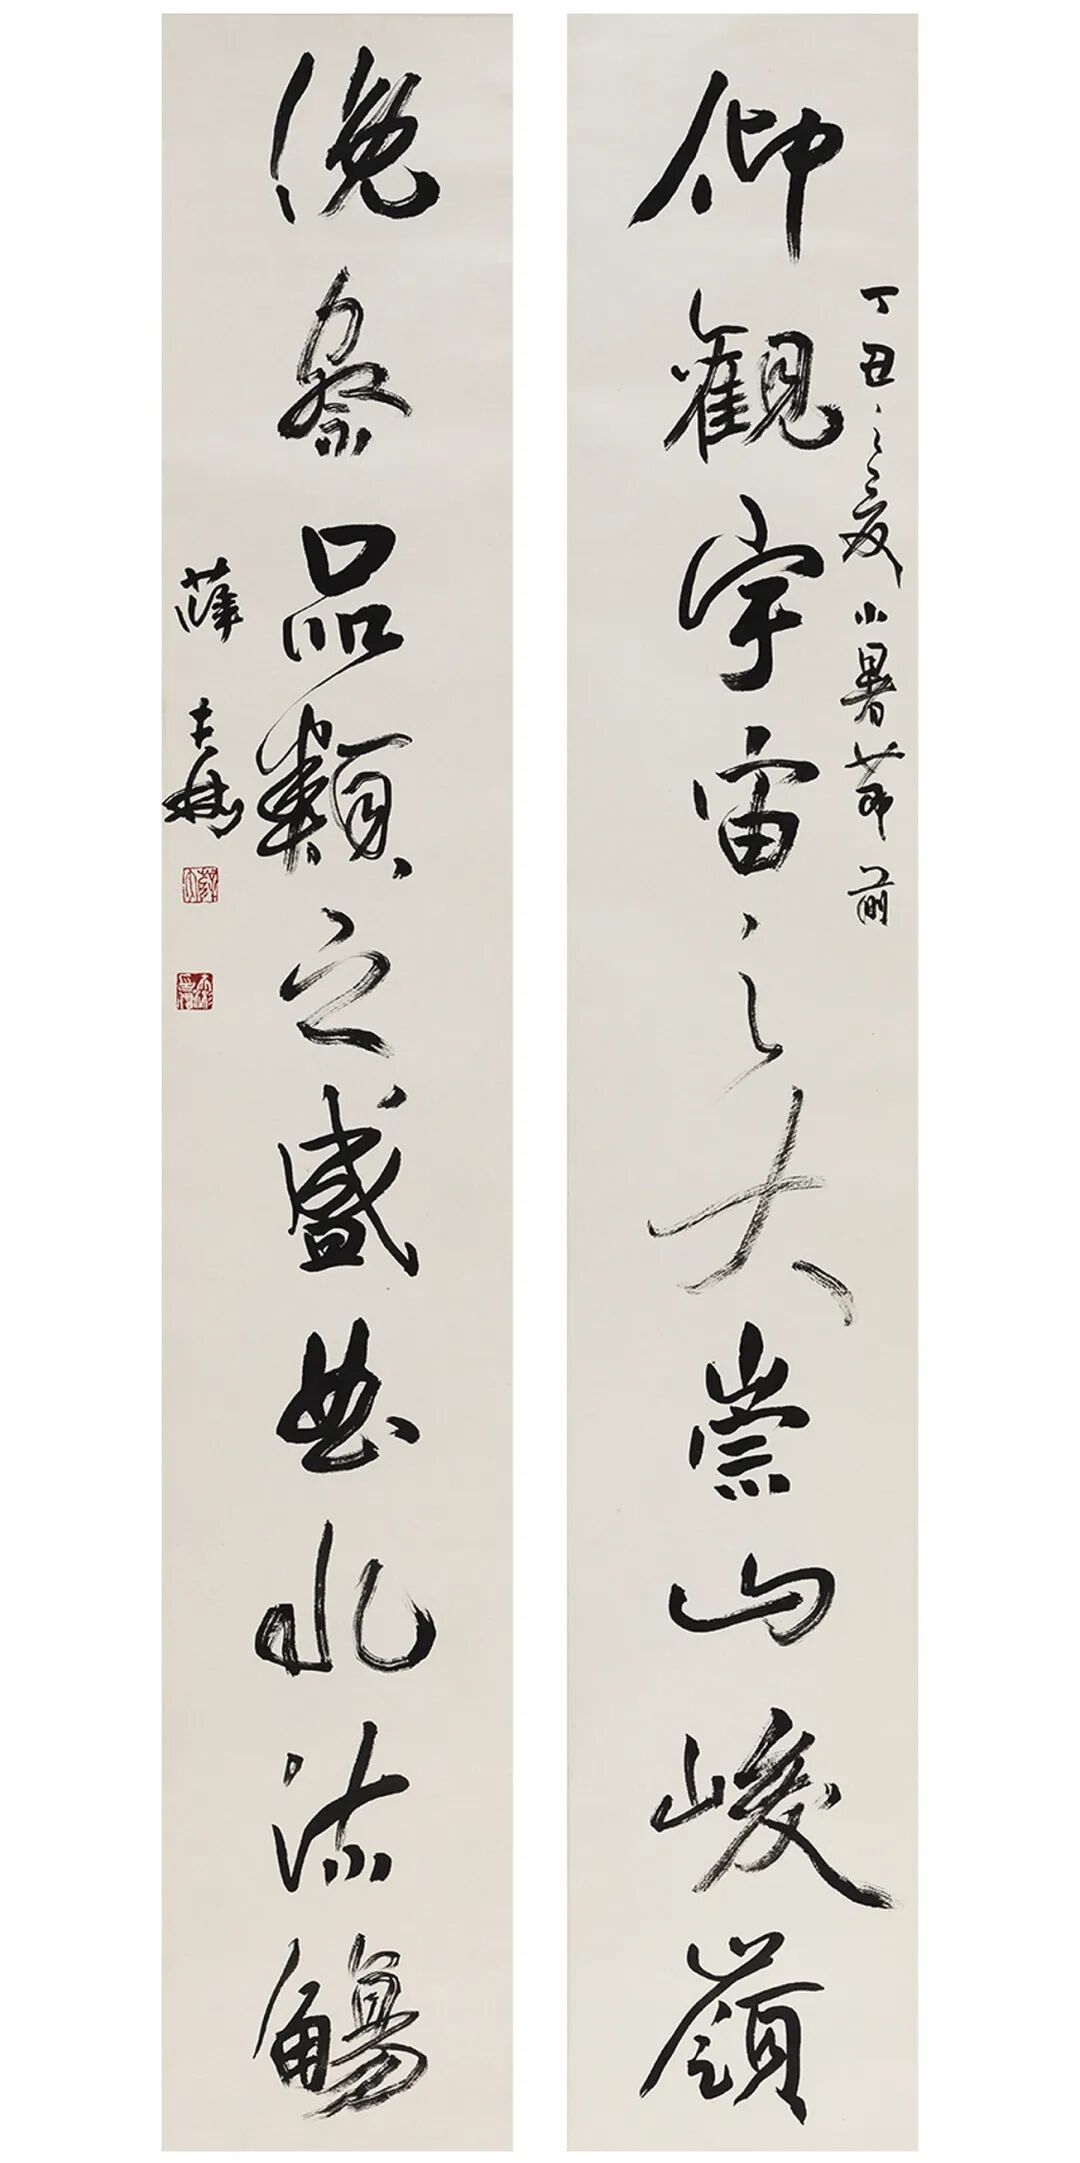 仰觀宇宙之大崇山峻嶺
丁丑之夏小暑節前
俛察品類之盛曲水流觴
薛夫彬